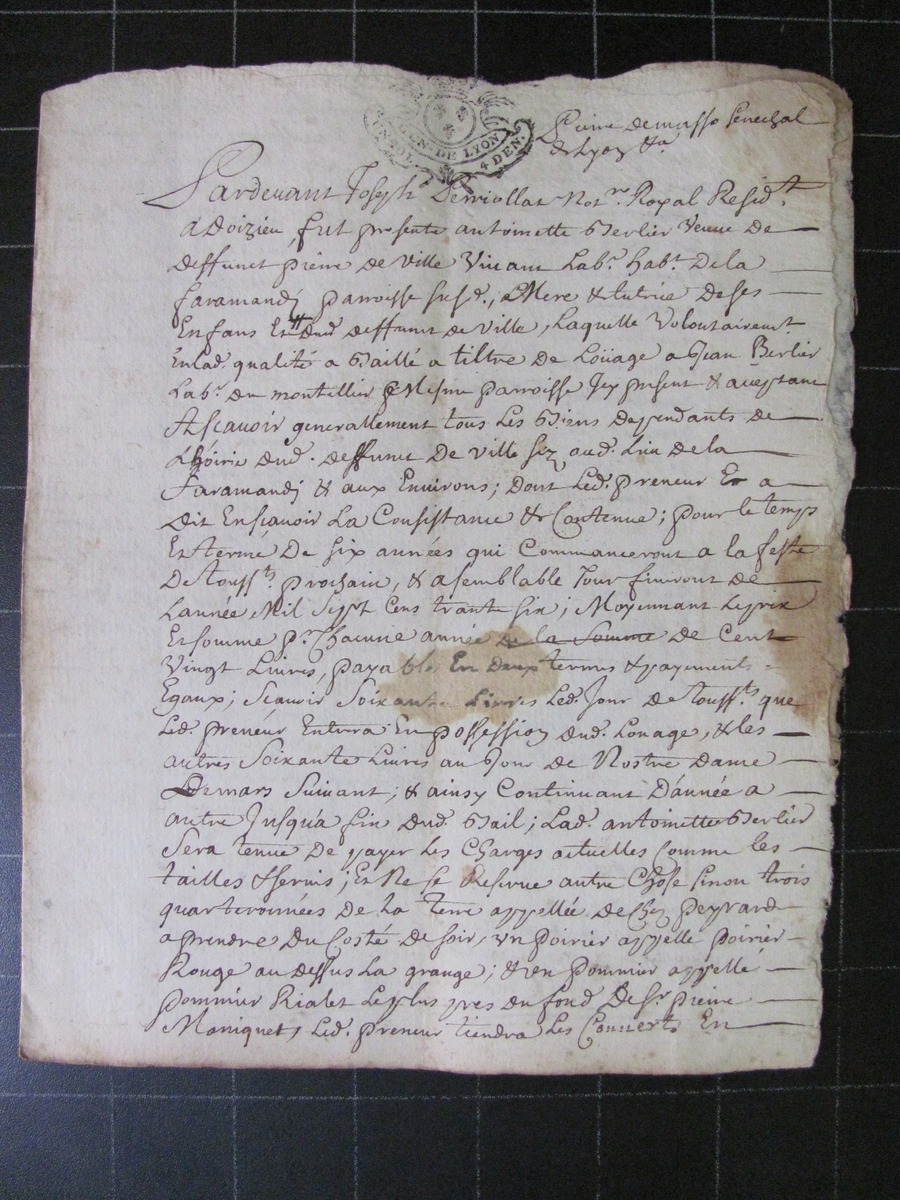 GEN. DE LYON
UN SOL. 4 DEN.
Pierre demasso senechal
de Lyon &a
Pardevant Joseph Not.re Royal Resid.t
a Doizieu, fut presente antoinette Berlier veuve de
deffunct pierre de ville vivant Lab.r hab.t De la
faramandj parroisse susd., Mere & tutrice De ses
Enfans Et dud deffunct de ville, Laquelle volontairem.t
En lad. qualité a Baillé a tiltre de Loüage a Jean Berlier
Lab.r du montellier Mesme parroisse Jcy present & acceptant
Ascavoir generallement tous Les Biens deppendants de
Lhoirie dud. deffunct De ville sis aud. Lieu De la
faramandj & aux Environs; dont Led. preneur a
dit En scavoir La Consistance & Contenue; pour le temps
Et terme De six années qui Commanceront a la feste
De touss.ts prochain, & a semblable Jour finiront de
Lannée Mil Sept Cens trante six; Moyennant Le prix
Et somme p.r Chacune année de la Somme de Cent
Vingt Livres, payables En deux termes & payements =
Egaux; scavoir Soixante Livres Led. Jour de touss.ts que
Led. preneur Entrera En possession dud. Louage, & les
autres Soixante Livres au Jour de Nostre Dame
De mars suivant; & ainsy Continuant Dannée a
autre Jusqua fin dud. Bail; Lad. antoinette Berlier
Sera tenue De payer Les Charges actuelles Comme les
tailles & servis; Et Ne se Reserve autre Chose sinon trois
quarteronnées de La terre appellée de Chez peyrard
a prendre Du Costé de soir, un poirier appelle poirier
Rouge au dessus La grange; & un pommier appellé
pommier Rialet Le plus pres du fond De s.r pierre
Moriquet, Led. preneur tiendra Les Couverts En